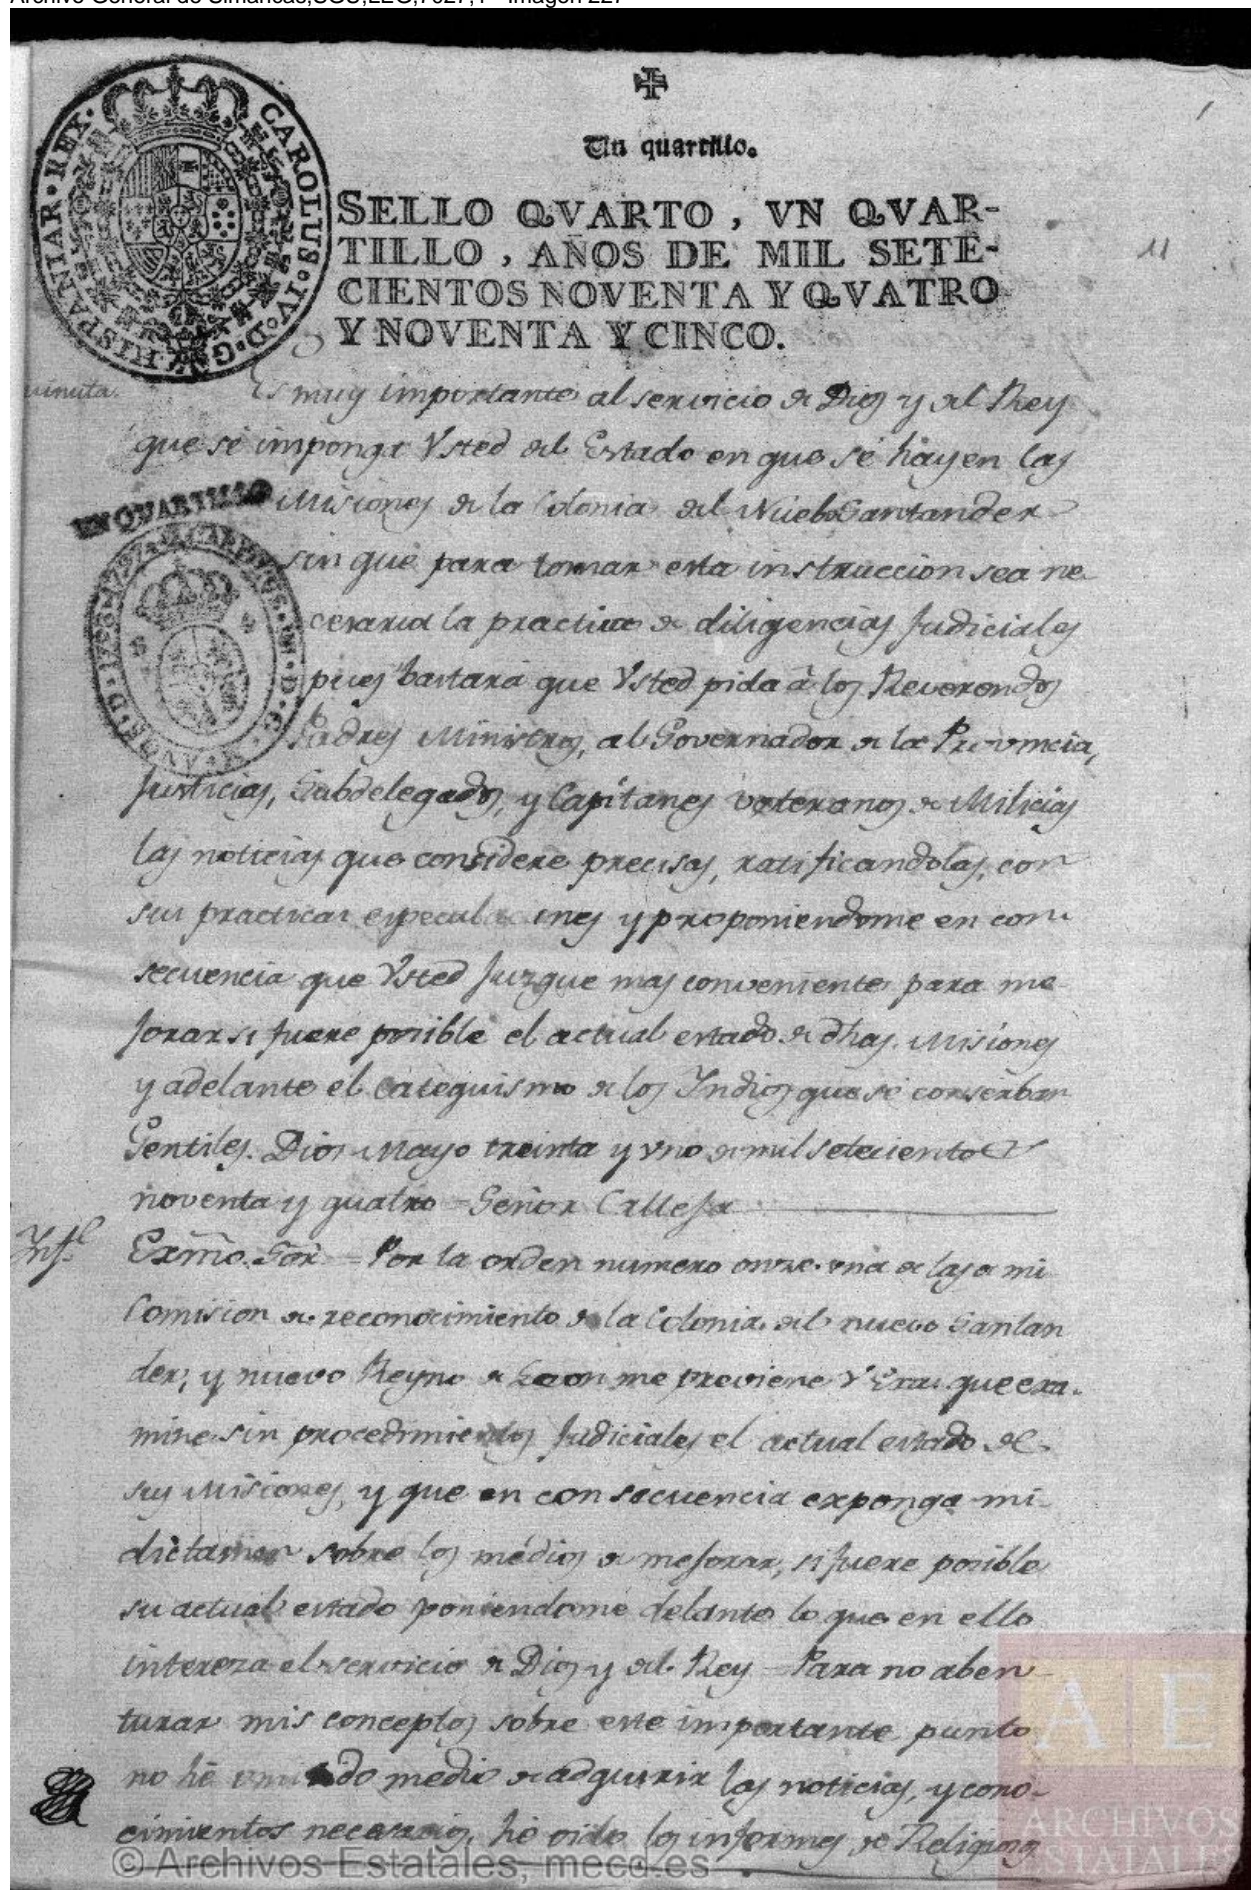 Archivo General de Simancas,SGU,LEG,7027,1 - Imagen 227
Un quartillo.
SELLO QVARTO, VN QVAR-
TILLO, AÑOS DE MIL SETE-
CIENTOS NOVENTA Y QVATRO
Y NOVENTA Y CINCO.
HISPANIAR·REX· CAROLUS·IV·D·G·
11
Es muy importante al servicio de Dios y del Rey
que se imponga Usted del Estado en que se hayen las
UN QUARTILLO
Misiones de la Colonia del Nuebo Santander
sin que para tomar esta instruccion sea ne
cesaria la practica de diligencias Judiciales
pues bastará que Usted pida á los Reverendos
Padres Ministros, al Governador de la Provincia,
Justicias, Subdelegados, y Capitanes veteranos de Milicias
las noticias que considere precisas, ratificandolas, con
sus practicas especulaciones y proponiendome en con
secuencia que Usted Juzgue mas conveniente para me
jorar si fuere posible el actual estado de dhas. Misiones
y adelante el Catequismo de los Indios que se conserban
Gentiles. Dios Mayo treinta y uno de mil setecientos
noventa y quatro = Señor Calleja
Inf.e
Exmo. Sor. = Por la orden numero onze una de las de mi
Comision de reconocimiento de la Colonia del nuevo Santan
der, y nuevo Reyno de Leon me previene V Exa. que exa-
mine sin procedimientos Judiciales el actual estado de
sus Misiones, y que en consecuencia exponga mi
dictamen sobre los médios de mejorar, si fuere posible
su actual estado poniendome delante lo que en ello
intereza el servicio de Dios y del Rey = Para no aben
turar mis conceptos sobre este importante punto
no hé omitido medio de adquirir las noticias, y cono-
cimientos necesarios, hé oido los informes de Religiosos
© Archivos Estatales, mecd.es
AE
ARCHIVOS
ESTATALES